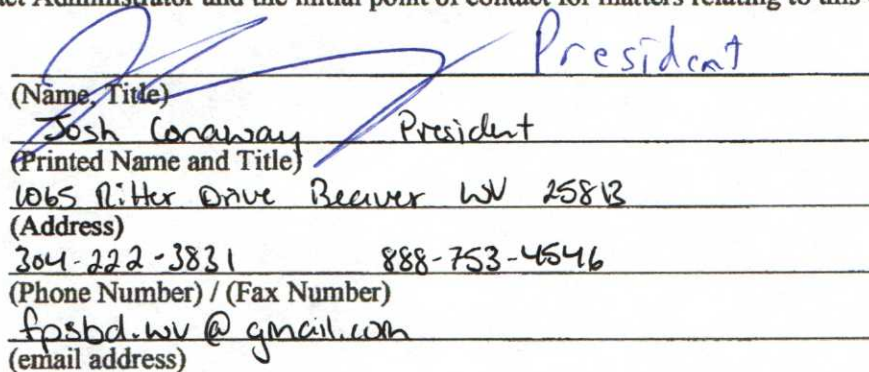 act Administrator and the initial point of contact for matters relating to this
President
(Name, Title)
Josh Conaway President
(Printed Name and Title)
1065 Ritter Drive Beaver WV 25813
(Address)
304-222-3831 888-753-4546
(Phone Number) / (Fax Number)
fpsbd.wv@gmail.com
(email address)